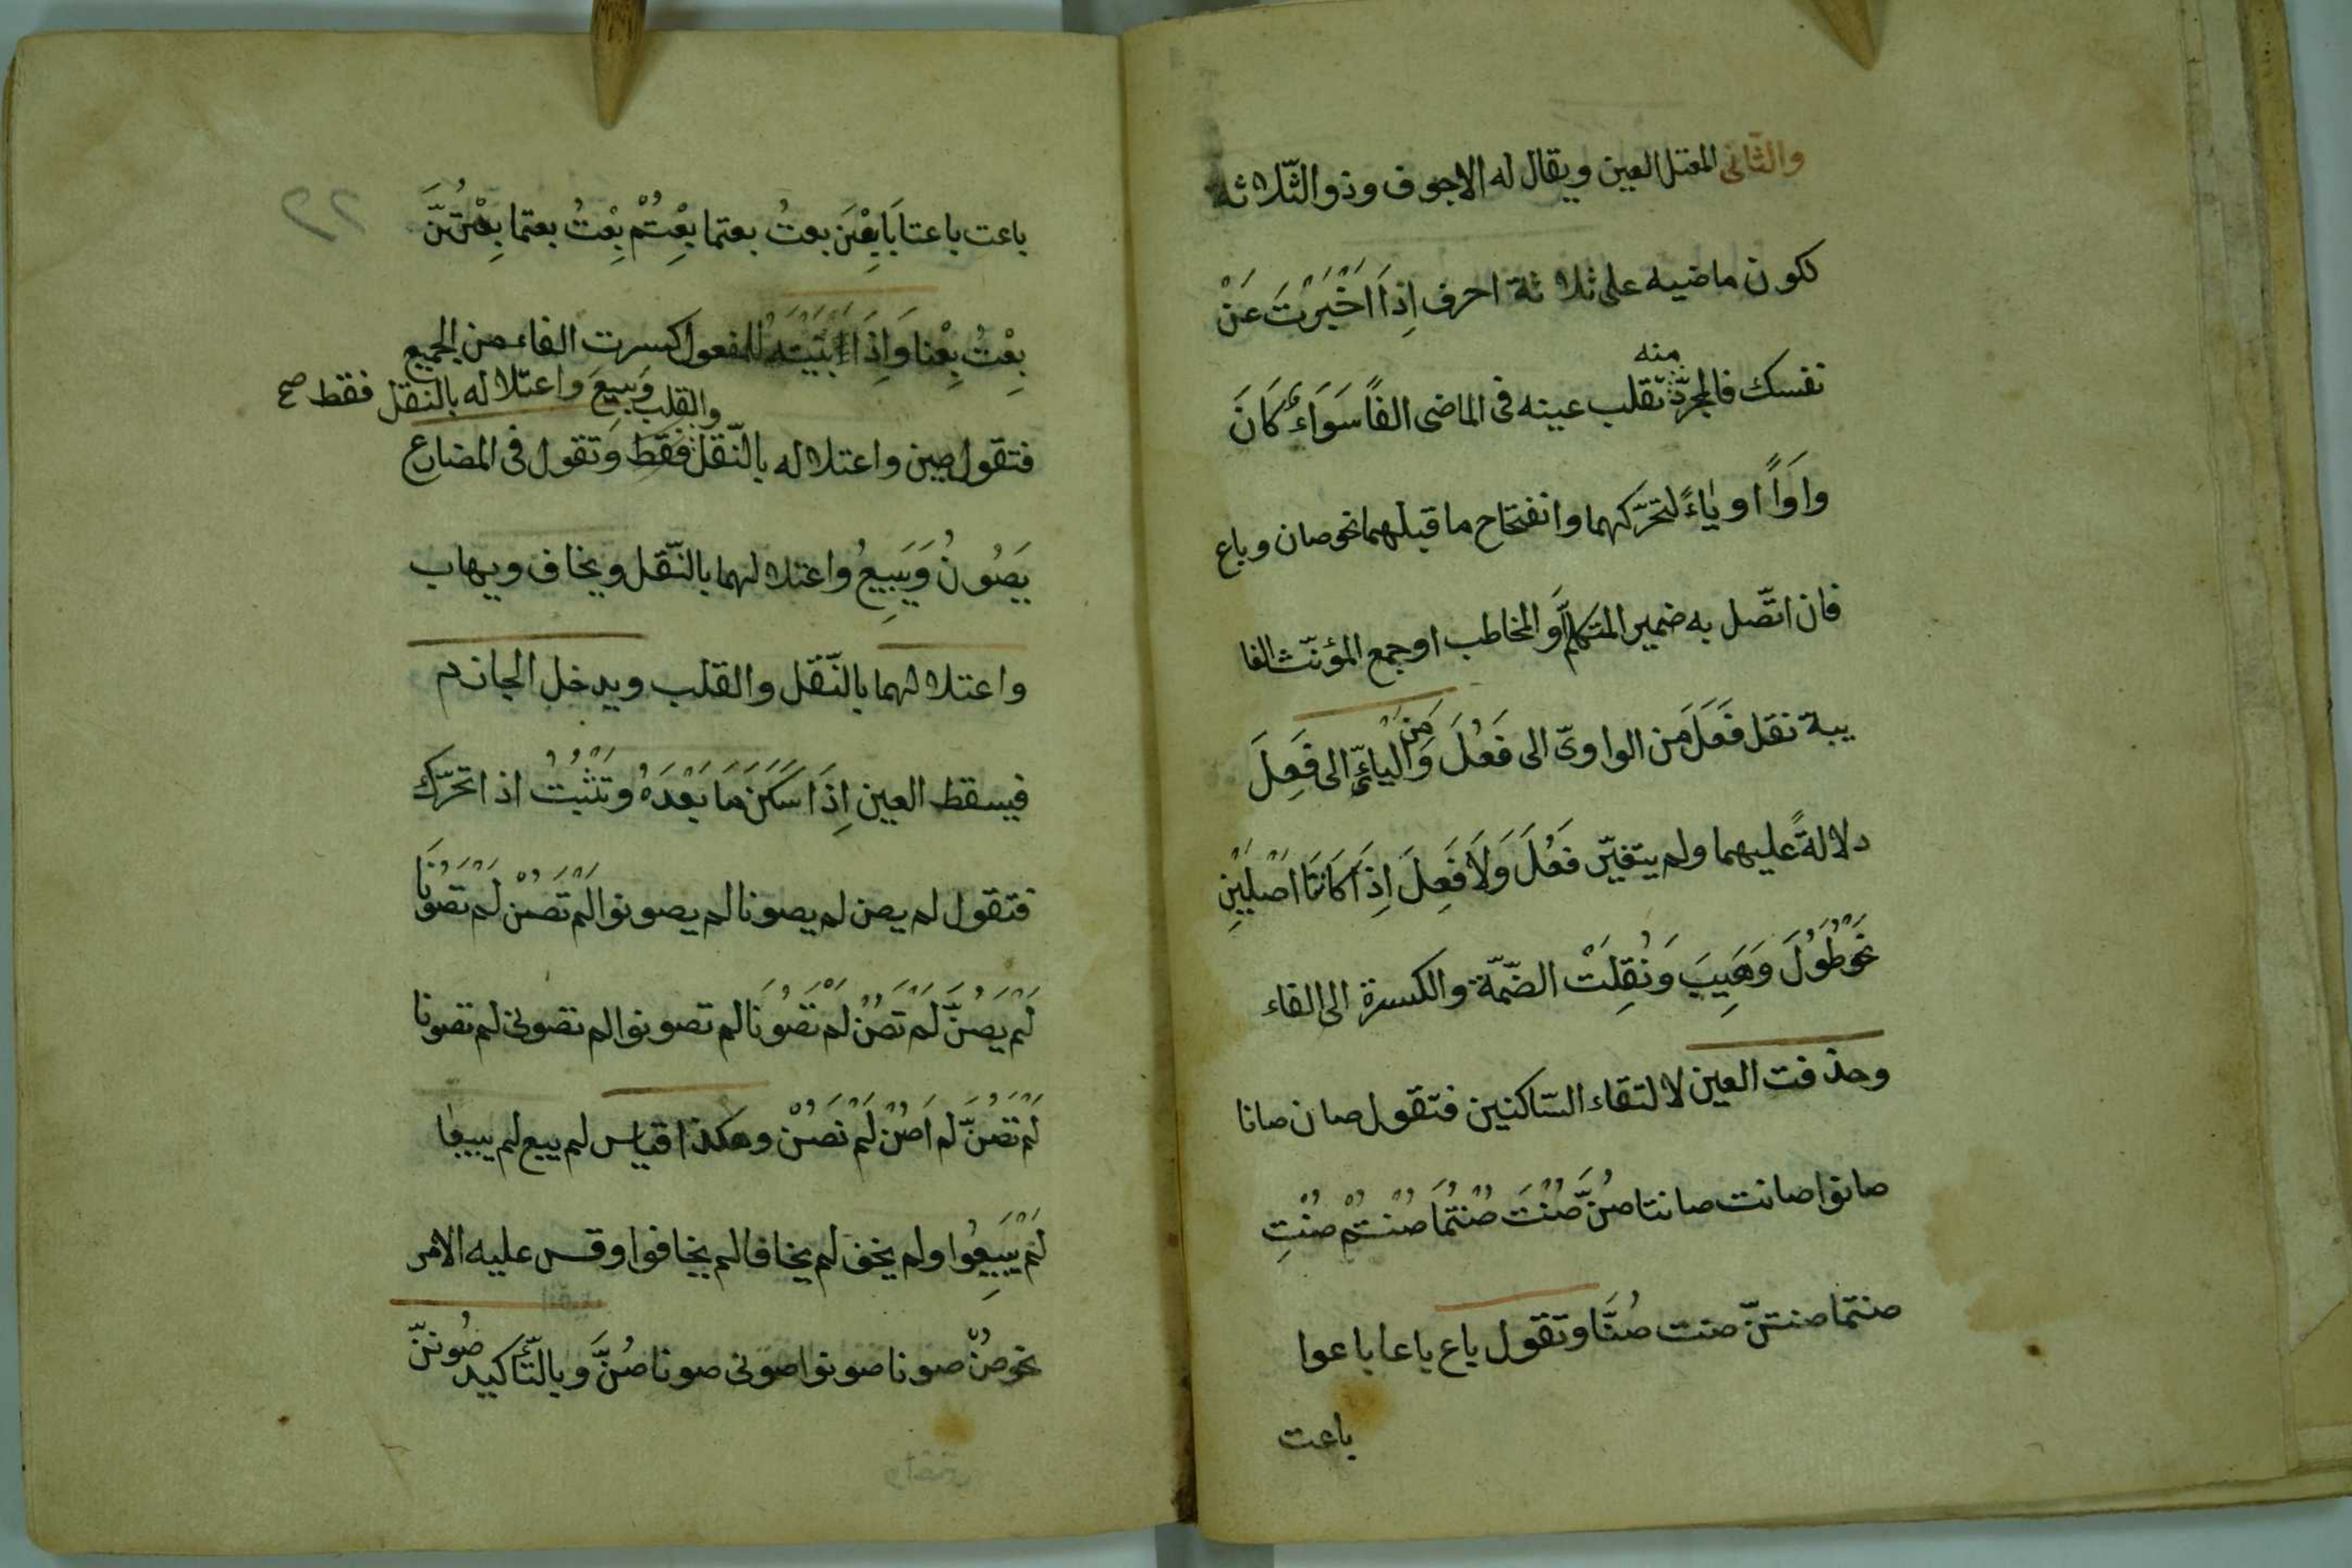 والثانى المعتل العين ويقال له الاجوف وذو الثّلاثة
لكون ماضيه على ثلاثة احرف اِذَا اَخْبَرْتَ عَنْ
منه
نفسك فالمجرّد تقلب عينه فى الماضى الفًا سَوَاءٌ كَانَ
واوًا او يَاءً لتحرّكهما وانفتاح ما قبلهما نحو صان وباع
فان اتّصل به ضمير المتكلّم اَو المخاطب او جمع المؤنّث الغا
يبة نقل فَعَلَ مَن الواوىّ الى فَعُلَ وَمَن اليائىّ الى فَعِلَ
دلالةً عليهما ولم يتغيّر فَعُلَ وَلَا فَعِلَ اِذَا كَانَتَا اَصْلِيَّيْنِ
نَحْوُ طَوُلَ وَهَيِبَ وَنُقِلَتْ الضّمّة والكسرة الى الفاء
وحذفت العين لالتقاء السّاكنين فتقول صان صانا
صانوا صانت صانتا صُنَّ صُنْتَ صُنْتُمَا صُنْتُمْ صُنْتِ
صنتما صنتنّ صنت صُنَّا وتقول باع باعا باعوا
باعت
٢٢
باعت باعتا بَايِعْنَ بعتُ بعتما بِعْتُمْ بِعْتُ بعتما بِعْتُنَّ
بِعْتُ بِعْنا وَاِذَا ابَنَيْتَهُ للمفعول كسرت الفاء من الجميع
والقلب وَبِيعَ واعتلاله بالنقل فقط صح
فتقول صين واعتلاله بالنّقل فقط وَتقول فى المضارع
يَصُونُ وَيَبِيعُ واعتلالهما بالنّقل ويخاف ويهاب
واعتلالهما بالنّقل والقلب ويدخل الجازم
فيسقط العين اِذَا سَكَنَ مَا بَعْدَهُ وَتَثْبُتُ اذا تحرّك
فتقول لم يصن لم يصونا لم يصونوا لَمْ تَصُنْ لَمْ تَصُونَا
لَمْ يَصُنَّ لَمْ تَصُنْ لَمْ تَصُونَا لم تصونوا لم تصونى لم تصونا
لَمْ تَصُنَّ لم اَصُنْ لَمْ نَصُنْ وهكذا قياس لم يبع لم يبيعا
لَمْ يَبِيعُوا ولم يخف لم يخافا لم يخافوا وقس عليه الامر
نحو صُنْ صونا صونوا صونى صونا صُنَّ وَبالتّأكيد صُونَنَّ